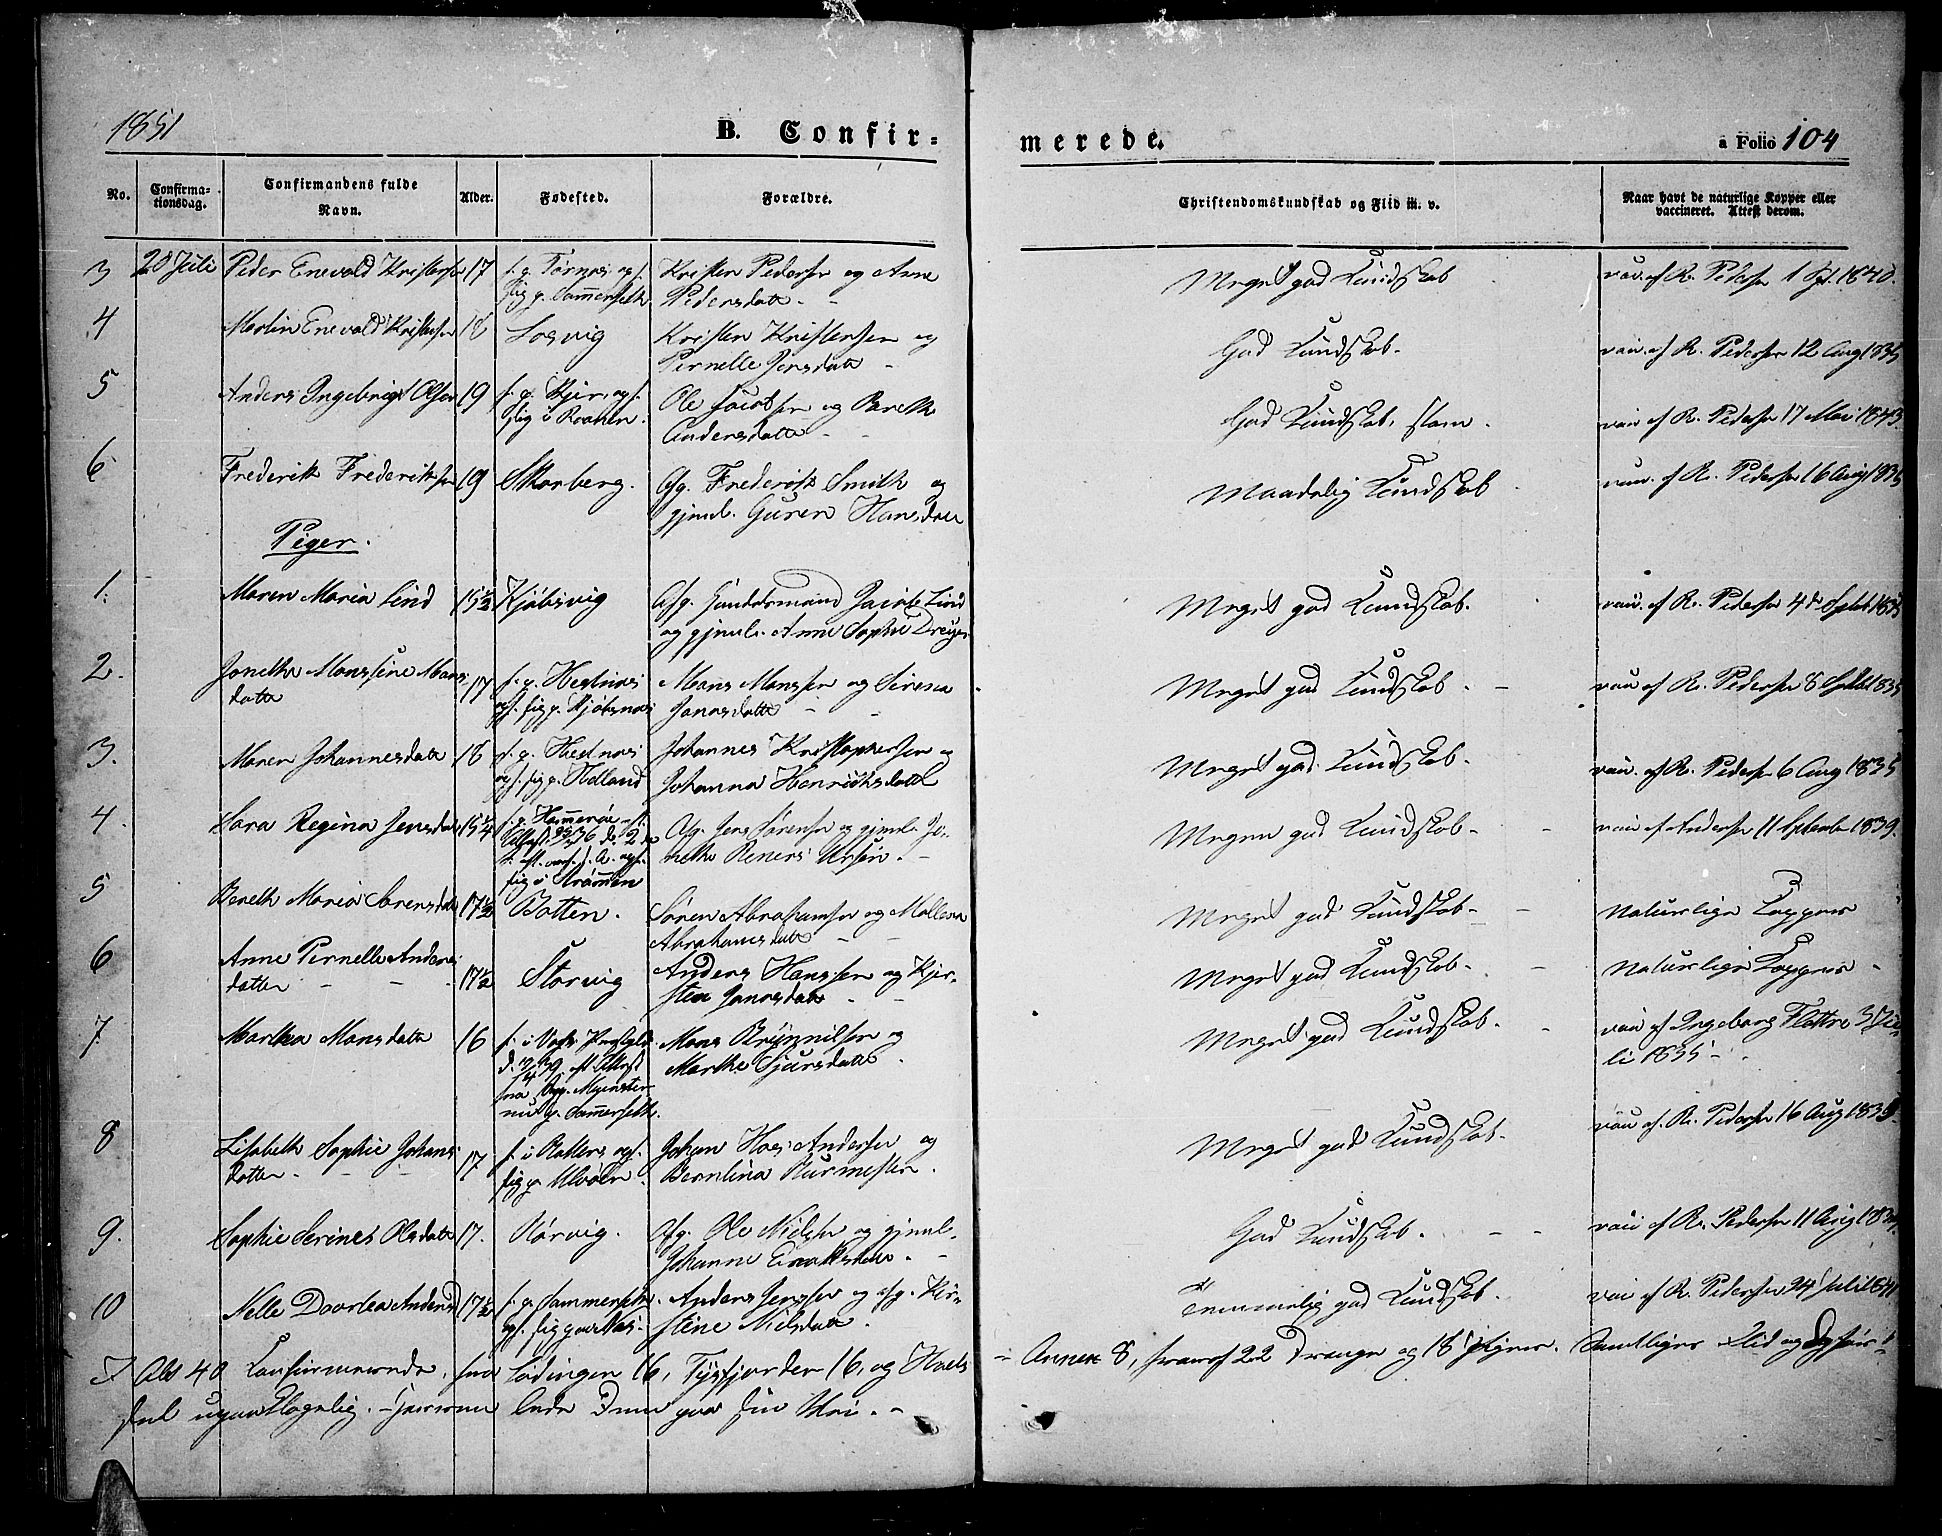 1851
B. Confir=
merede.
a Folio 104
No.
Confirma=
tionsdag.
Confirmandens fulde
Navn.
Alder.
Fødested.
Forældre.
Christendomskundskab og Flid m. v.
Naar havt de naturlige Kopper eller
vaccineret. Attest derom.
3 20 Juli Peder Enevold 17 Kristen Pedersen og Anne
Pedersdatt.
Meget god Kundskab
vac. af R. Pedersen 1 1840.
4 Martin Enevold 18 Losvig Kristen Kristensen og
Pernelle Jensdatt
God Kundskab.
vac. af R. Pedersen 12 Aug 1835
5 Anders Ingebrigt Olsen 19 f. p. og f.
sig i Ole Jacobsen og Bereth
Andersdatt
God Kundskab,
vac af R. Pedersen 17 Mai 1843
6 Frederik Frederiksen 19 Skarberg. Afg. Frederik Smith og
gjenl. Guren Hansdatt
Maadelig Kundskab
vac. af R. Pedersen 16 Aug 1835
Piger.
1. Maren Maria Lind 15½ Kjøbsvig Afg. Jacob Lind
og gjenl. Anne Sophie Dreyer
Meget god Kundskab.
vac. af R. Pedersen 4de Septb 1835
2. Jonetha Monssine Mons
datt 17 f. p. Hestnes
og f. sig p. Kjøbsnes Mons Monssen og Sirena
Jonasdatt
Meget god Kundskab.
vac. af R. Pedersen 8 Septbr 1835
3. Maren Johannesdatt 18 f. p. Hestnes
og f. sig p. Helland Johannes Kristophersen og
Johanna Henriksdatt
Meget god Kundskab.
vac. af R. Pedersen 6 Aug 1835
4. Sara Regina Jensdatt 15¼ f. p. Hammerøe
sig i Strømmen Afg. Jens Sørensen og gjenl. Je-
netha
Megen god Kundskab.
vac af Andersen 11 September 1839.
5 Bereth Maria Sørensdatt 17½ Botten. Søren Abrahamsen og
Abrahamsdatt
Meget god Kundskab.
Naturlige Kopper
6 Anne Pernelle Anders
datter 17½ Storvig Anders Hanssen og Kjer-
sten Jonasdatt
Meget god Kundskab.
Naturlige Kopper
7 Martha Monsdatt 16 f. i Vos Præstgld
nu p. Sammerseth. Mons Brynnilsen og
Marthe Sjursdatt
Meget god Kundskab.
vac af Ingeborg Flattre 3 Ju-
li 1835
8 Lisabeth Sophie Johans
datter 17 f. i og f.
sig p. Ulvøen. Johan Andersen og
Berntina Burmester.
Meget god Kundskab.
vac af. R. Pedersen 16 Aug 1835
9. Sophie Serines Olsdatt 17. Kørvig. Afg. Ole Nielsen og gjenl.
Johanne
God Kundskab.
vac af R. Pedersen 11 Aug
10 Nelle Doortea Andersd 17½ f. p. Sammerseth
og f. sig paa Næs. Anders Jenssen og afg. Kir-
stine Nielsdatt.
Temmelig god Kundskab.
vac af R. Pedersen 24 Juli 1841
I Alt 40 Confirmerende, fra Lødingen 16, Tysfjorden 16, og Hvels
Annex 8, hvoraf 22 Drenge og 18 Piger. Samtliges Flid og Opfør-
sel upaaklagelig.